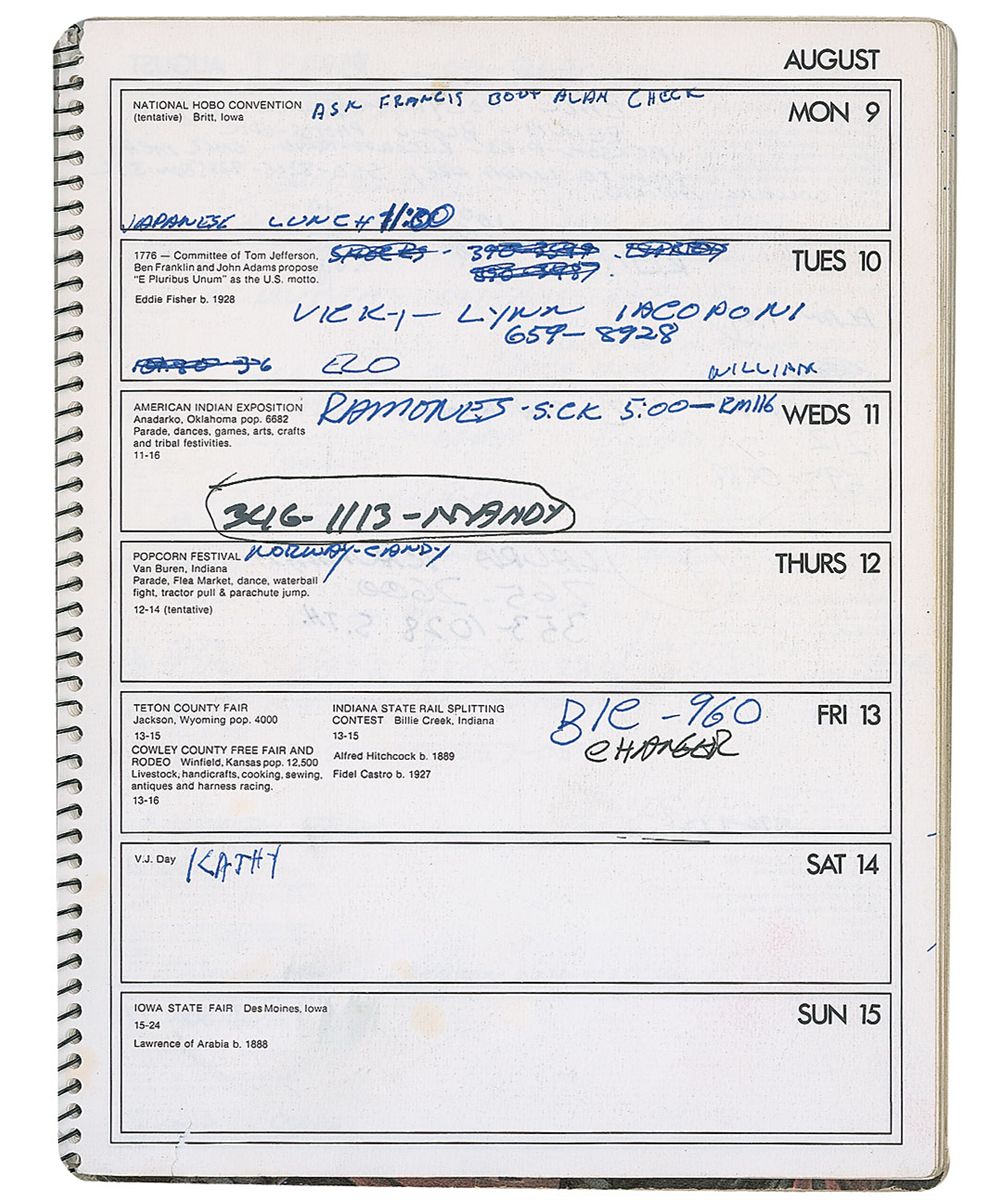 AUGUST
MON 9
NATIONAL HOBO CONVENTION
(tentative) Britt, Iowa
ASK FRANCIS BOUT ALAN CHECK
JAPANESE LUNCH 11:30
TUES 10
1776 — Committee of Tom Jefferson,
Ben Franklin and John Adams propose
"E Pluribus Unum" as the U.S. motto.
Eddie Fisher b. 1928
VICKI — LYNN IACOPONI
659-8928
ELO
WILLIAM
WEDS 11
AMERICAN INDIAN EXPOSITION
Anadarko, Oklahoma pop. 6682
Parade, dances, games, arts, crafts
and tribal festivities.
11-16
RAMONES - S:CK 5:00 — RM116
346-1113-MANDY
THURS 12
POPCORN FESTIVAL
Van Buren, Indiana
Parade, Flea Market, dance, waterball
fight, tractor pull & parachute jump.
12-14 (tentative)
NORWAY-CANDY
FRI 13
TETON COUNTY FAIR
Jackson, Wyoming pop. 4000
13-15
COWLEY COUNTY FREE FAIR AND
RODEO Winfield, Kansas pop. 12,500
Livestock, handicrafts, cooking, sewing,
antiques and harness racing.
13-16
INDIANA STATE RAIL SPLITTING
CONTEST Billie Creek, Indiana
13-15
Alfred Hitchcock b. 1889
Fidel Castro b. 1927
BIC - 960
CHANGER
SAT 14
V.J. Day
KATHY
SUN 15
IOWA STATE FAIR Des Moines, Iowa
15-24
Lawrence of Arabia b. 1888